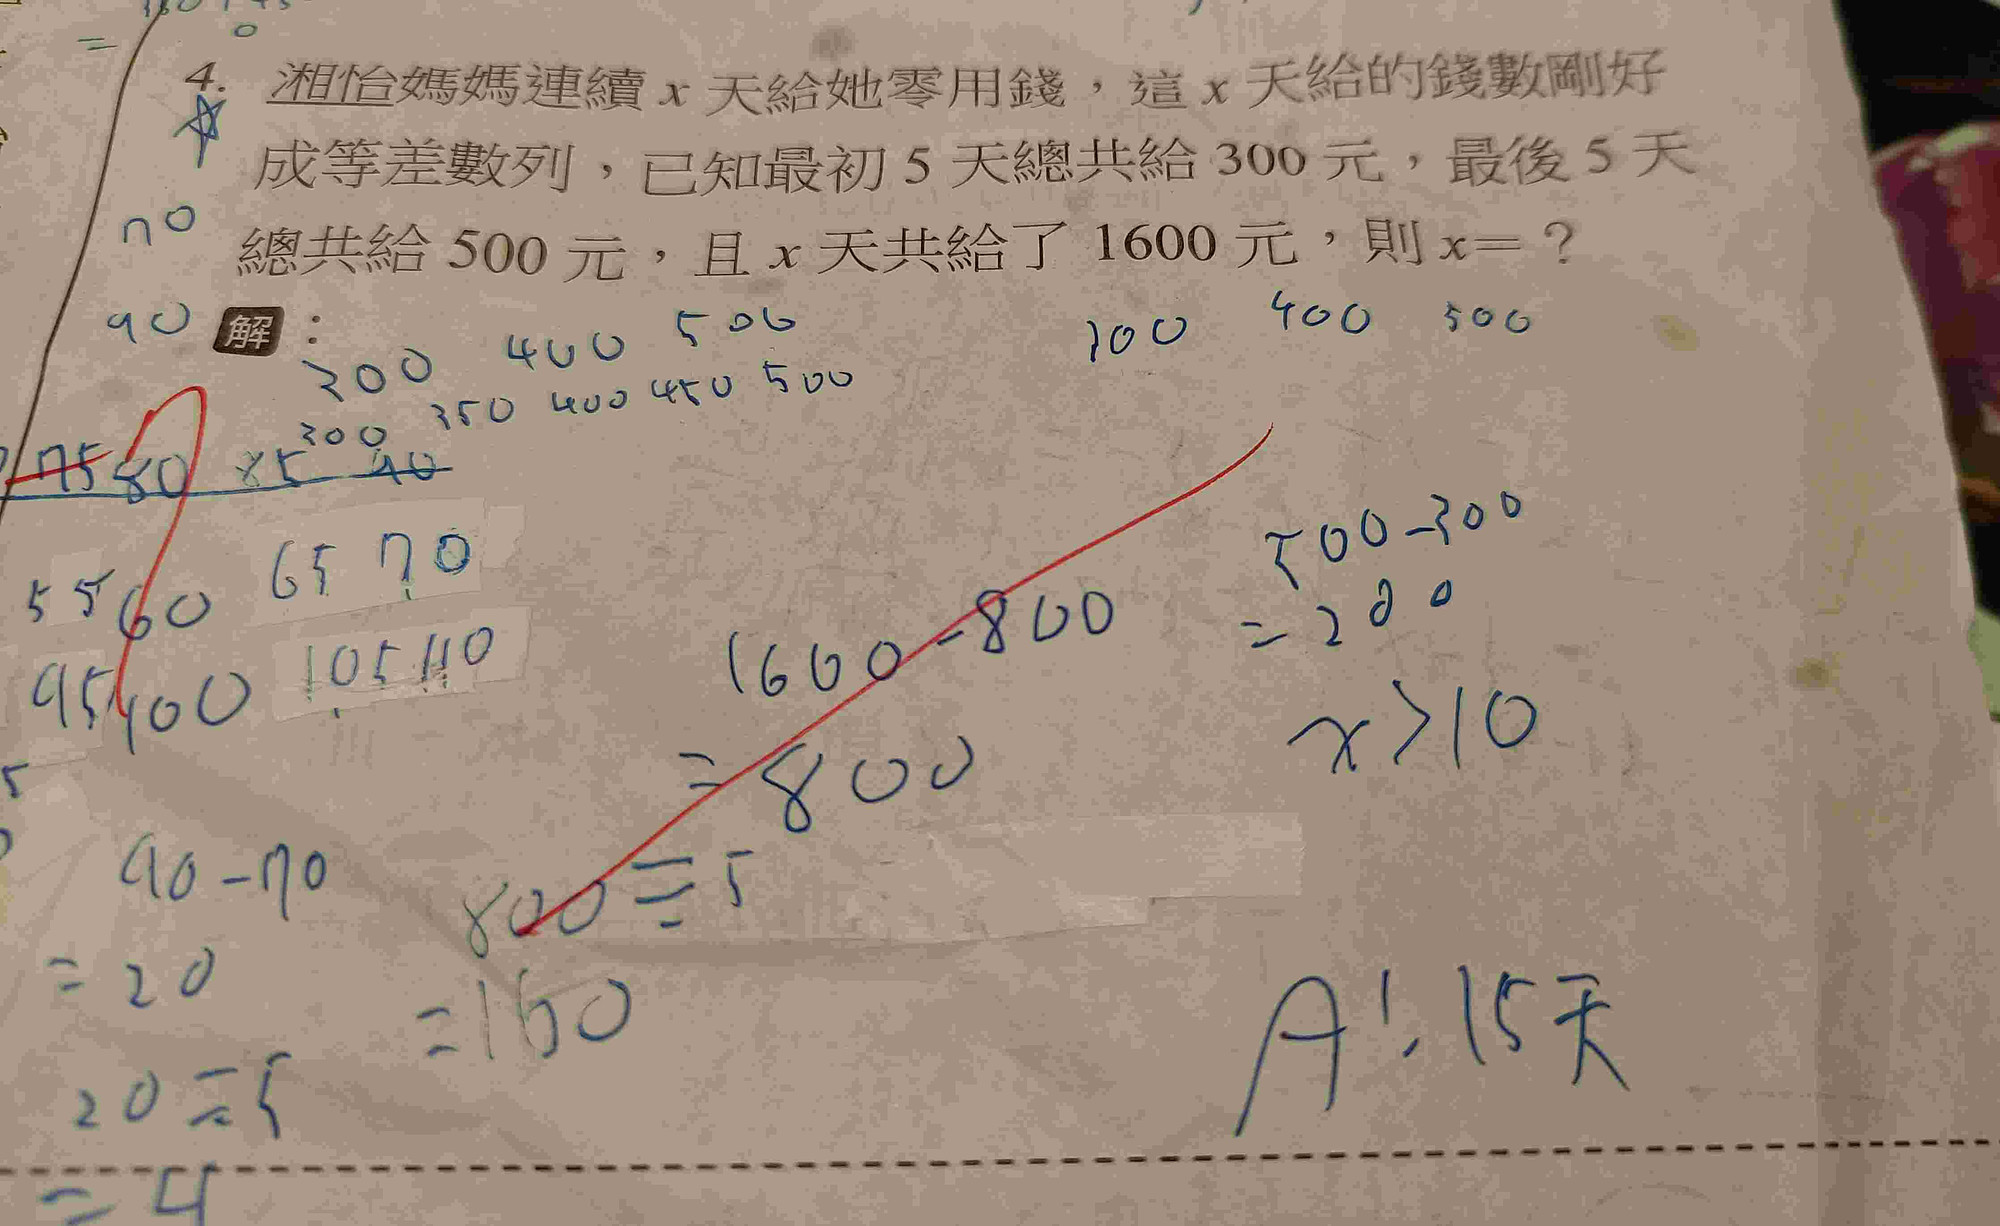 4. 湘怡媽媽連續 x 天給她零用錢，這 x 天給的錢數剛好
成等差數列，已知最初 5 天總共給 300 元，最後 5 天
總共給 500 元，且 x 天共給了 1600 元，則 x=？
70
90
解：
300 400 500
300 400 500
300 350 400 450 500
75 80 85 90
55 60 65 70
95 100 105 110
500-300
=200
x>10
1600-800
=800
800÷5
=160
90-70
=20
20÷5
=4
A:15天